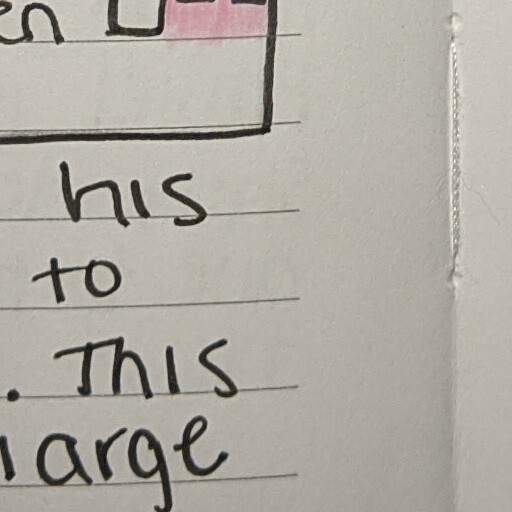 en
his
to
. This
large